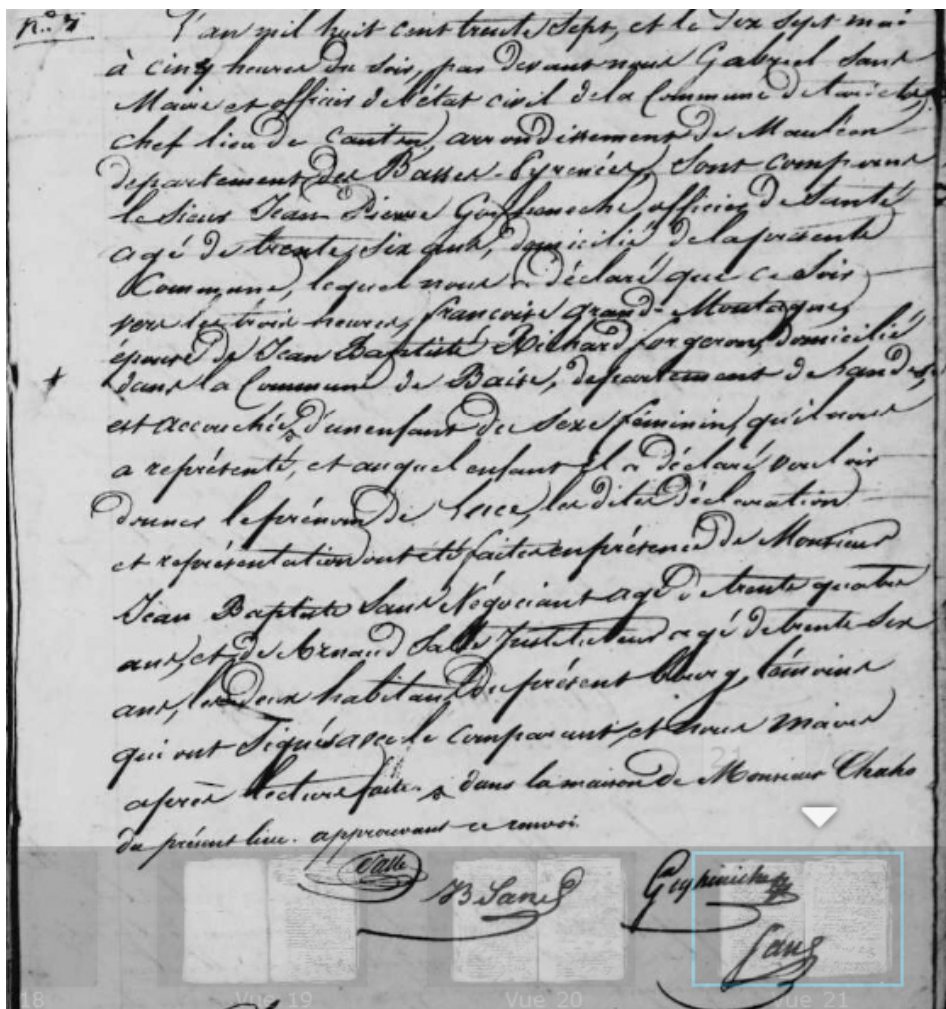 n.º 7
L'an mil huit cent trente sept, et le dix sept mai
à cinq heures du soir, par devant nous Gabriel Sans
Maire et officier de l'état civil de la Commune de
chef lieu de canton, arrondissement de Mauléon
departement des Basses-Pyrenées, sont comparus
le sieur Jean Pierre Goyheneche, officier de santé
agé de trente six ans, domicilié de la présente
Commune, lequel nous a déclaré que ce soir
vers les trois heures, francoise grand-Montagne,
épouse de Jean Baptiste Richard forgeron, domicilié
dans la Commune de, departement de Landes,
est accouchée, d'un enfant du sexe féminin, qu'il nous
a représenté, et auquel enfant il a déclaré vouloir
donner le prénom de, les dites déclaration
et représentation ont été faites en présence de Monsieur
Jean Baptiste Sans Négociant agé de trente quatre
ans, et de Arnaud Salle Instituteur agé de trente six
ans, les deux habitans du présent bourg, témoins
qui ont signés avec le comparant, et nous maire
après lecture faite. dans la maison de Monsieur Chaho
du présent lieu. approuvant ce renvoi.
Salle
JB Sans
Goyheneche
Sans
21
18 Vue 19 Vue 20 Vue 21